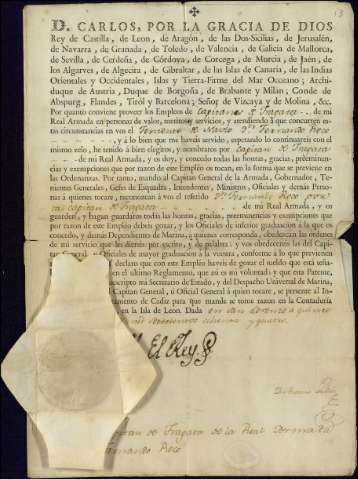 D. CARLOS, POR LA GRACIA DE DIOS
Rey de Castilla, de Leon, de Aragón, de las Dos-Sicilias, de Jerusalén,
de Navarra, de Granada, de Toledo, de Valencia, de Galicia de Mallorca,
de Sevilla, de Cerdeña, de Córdova, de Corcega, de Murcia, de Jaén, de
los Algarves, de Algecira, de Gibraltar, de las Islas de Canaria, de las Indias
Orientales y Occidentales, Islas y Tierra-Firme del Mar Occeano; Archi-
duque de Austria, Duque de Borgoña, de Brabante y Milan, Conde de
Abspurg, Flandes, Tiról y Barcelona; Señor de Vizcaya y de Molina, &c.
Por quanto conviene proveer los Empleos de Capitanes de Fragata de mi
Real Armada en personas de valor, meritos y servicios, y atendiendo à que concurren es-
tas circunstancias en vos el Teniente de Navio Dn. Fernando Reco
, y à lo bien que me haveis servido, esperando lo continuareis con el
mismo zelo, he tenido à bien elegiros, y nombraros por Capitan de Fragata
de mi Real Armada, y os doy, y concedo todas las honras, gracias, preéminen-
cias y exempciones que por razon de este Empléo os tocan, en la forma que se previene en
las Ordenanzas. Por tanto, mando al Capitan General de la Armada, Gobernador, Te-
nientes Generales, Gefes de Esquadra, Intendentes, Ministros, Oficiales y demás Perso-
nas à quienes tocare, reconozcan à vos el referido Dn. Fernando Reco por
mi Capitan de Fragata de mi Real Armada, y os
guarden, y hagan guardaros todas las honras, gracias, preéminencias y exempciones que
por razon de este Empleo debeis gozar, y los Oficiales de inferior graduación à la que os
concedo, y demás Dependientes de Marina, à quienes corresponda, obedezcan las ordenes
de mi servicio que les diereis por escrito, y de palabra; y vos obedecereis las del Capi-
tan General, y Oficiales de mayor graduacion à la vuestra, conforme à lo que previenen
declaro que con este Empléo haveis de gozar el sueldo que está seña-
en el ultimo Reglamento, que asi es mi voluntad; y que esta Patente,
Secretario de Estado, y del Despacho Universal de Marina,
Capitan General, ù Oficial General à quien tocare, se presente al In-
de Cadiz para que mande se tome razon en la Contaduría
en la Isla de Leon. Dada en San Lorenzo à quince
mil setecientos ochenta y quatro.
Yo El Rey
Capitan de Fragata de la Real Armada
Fernando Reco